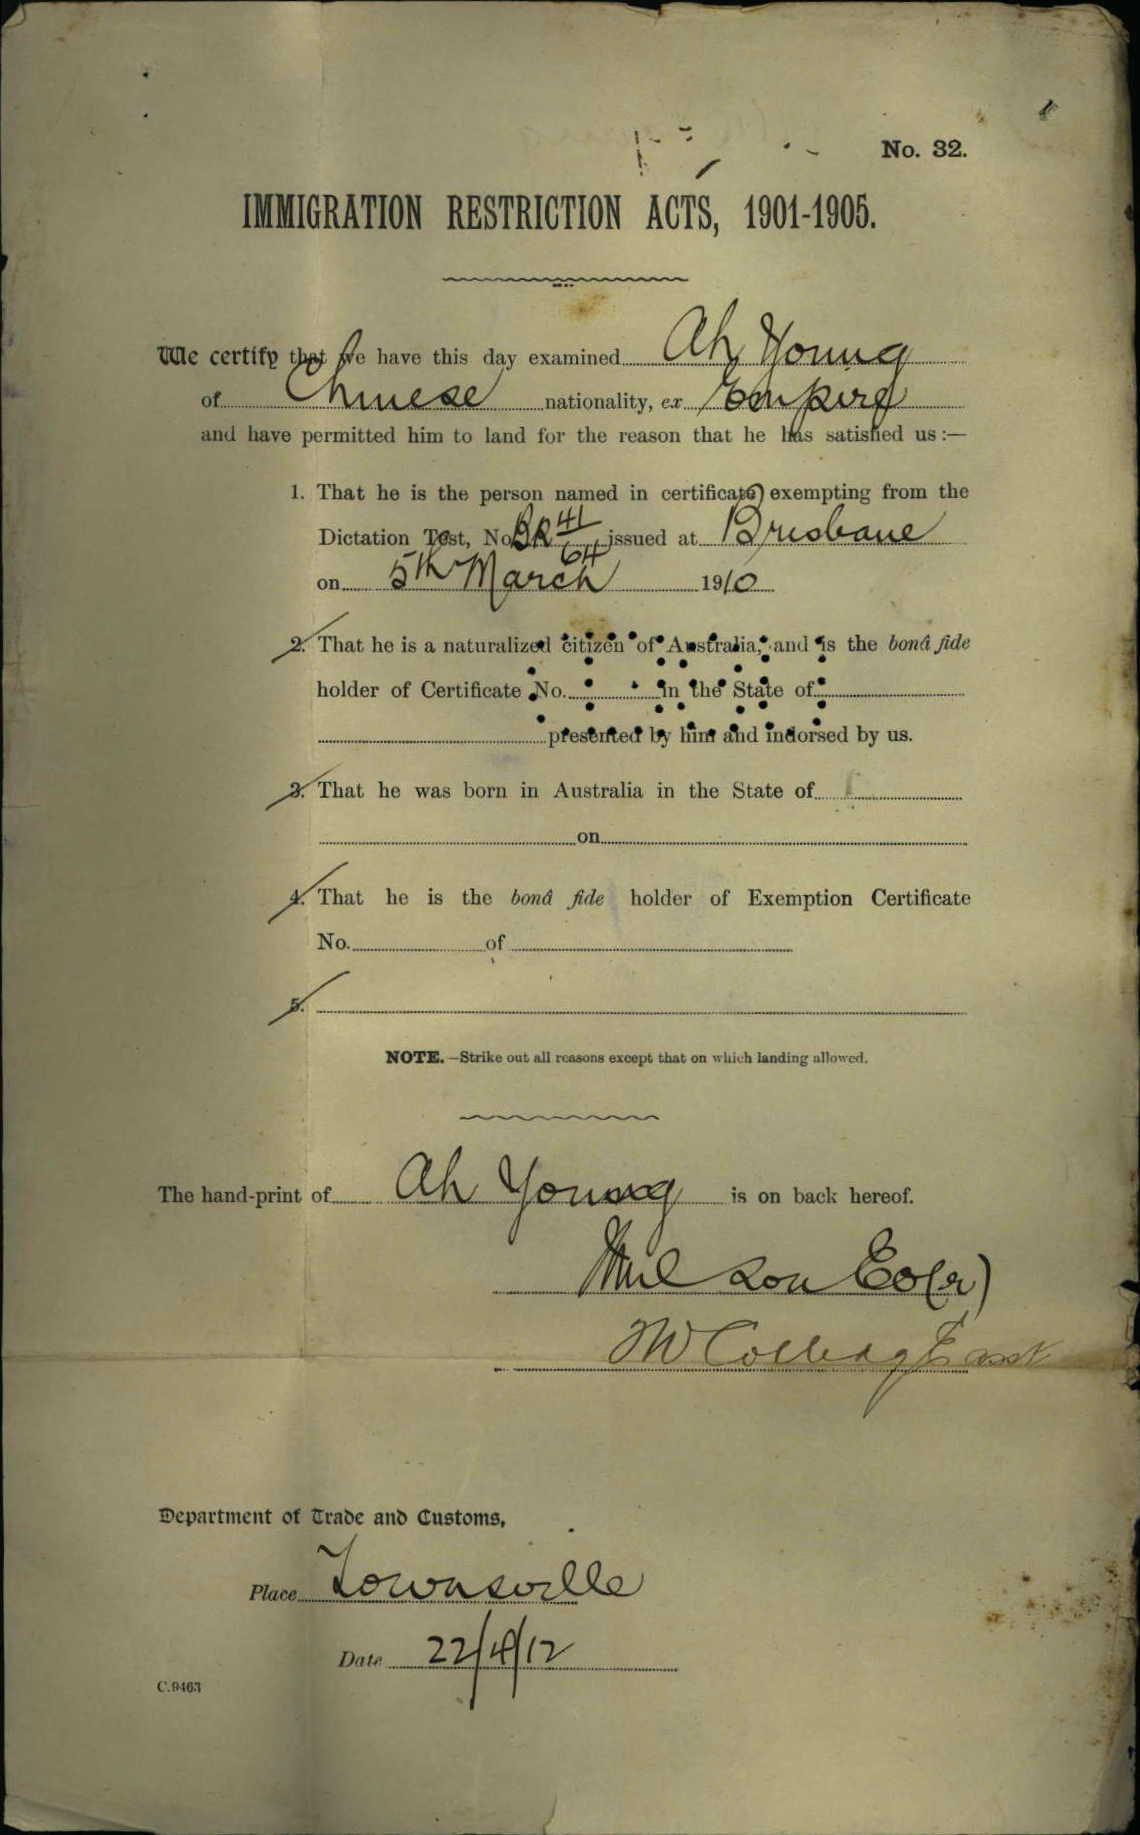 No. 32.
IMMIGRATION RESTRICTION ACTS, 1901-1905.
We certify that we have this day examined Ah Young
of Chinese nationality, ex Empire
and have permitted him to land for the reason that he has satisfied us :—
1. That he is the person named in certificate exempting from the
Dictation Test, No. BR 41/64 issued at Brisbane
on 5th March 1910
2. That he is a naturalized citizen of Australia, and is the bonâ fide
holder of Certificate No. in the State of
presented by him and indorsed by us.
3. That he was born in Australia in the State of
on
4. That he is the bonâ fide holder of Exemption Certificate
No. of
5.
NOTE.—Strike out all reasons except that on which landing allowed.
The hand-print of Ah Young is on back hereof.
Department of Trade and Customs,
Place Townsville
Date 22/4/12
C.9463